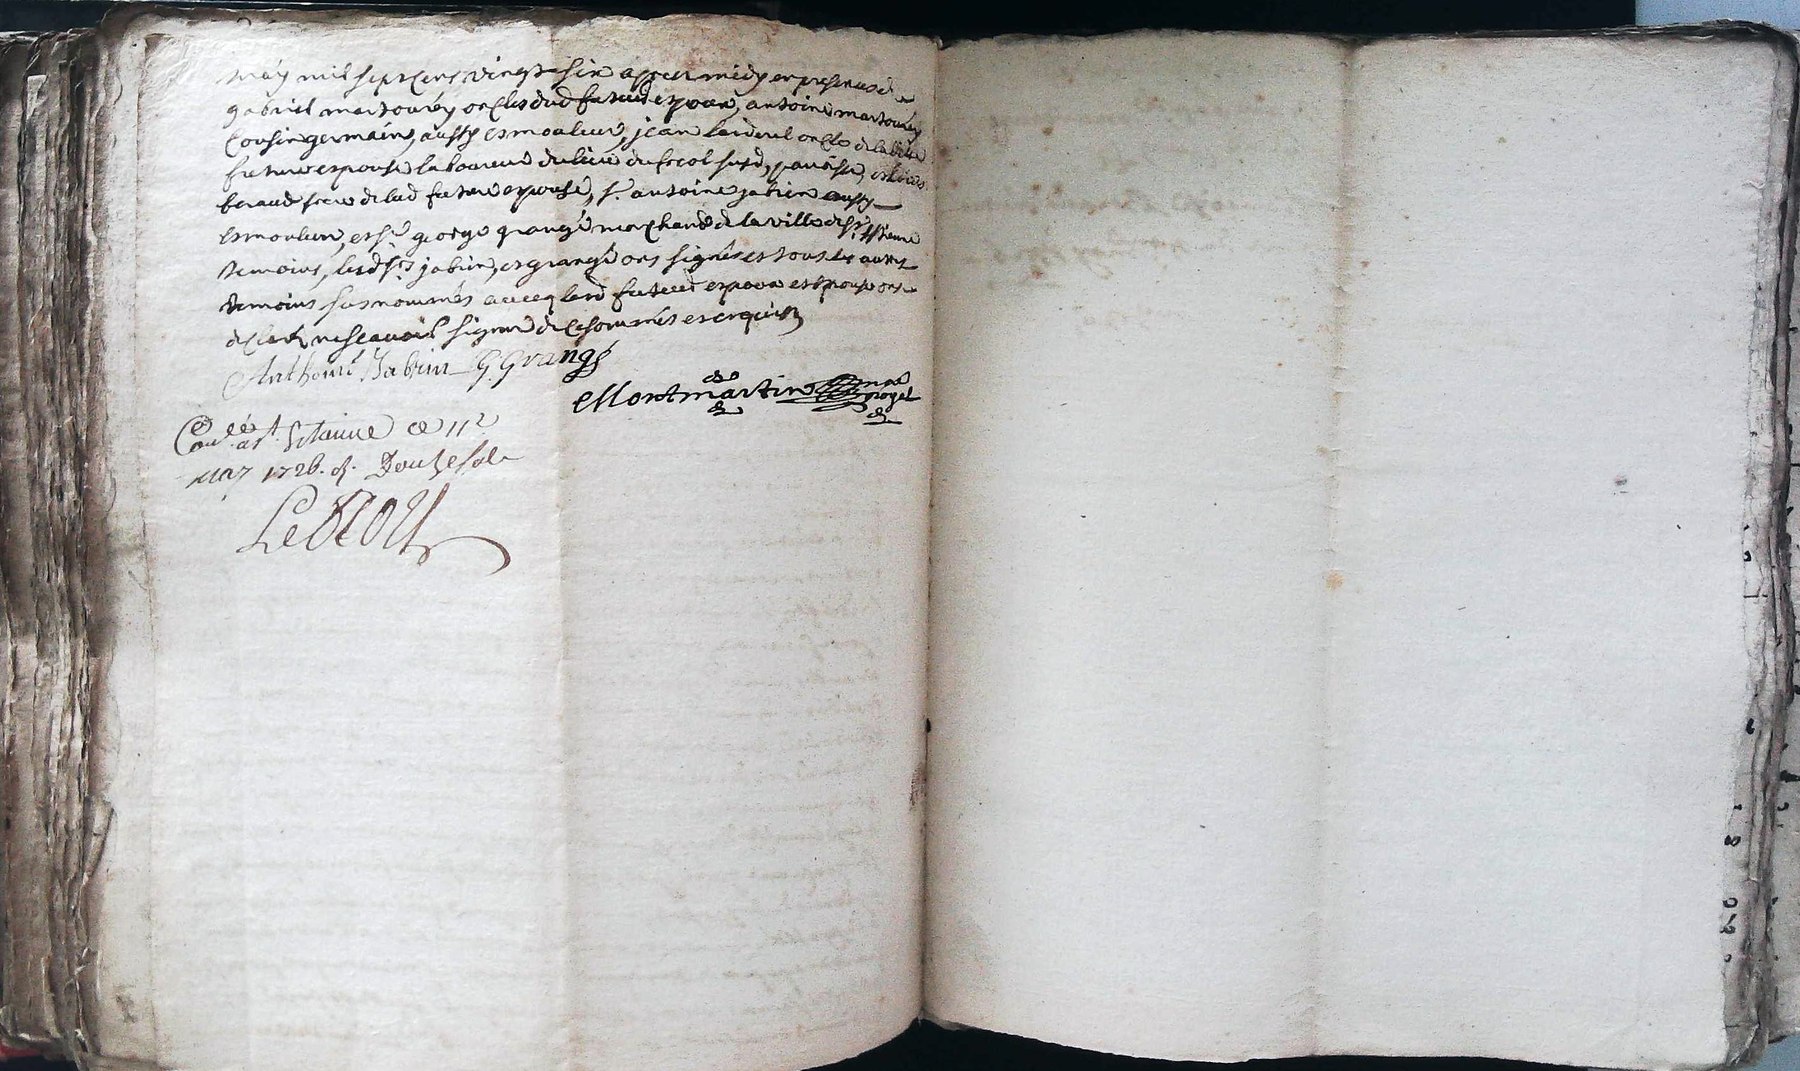 may mil sept cens vingt six apres midy en presence de
gabriel martourey oncle dud futeur espoux, antoine martourey
cousin germain, aussy esmouleur, jean oncle de lad
future espouse laboureur du lieu du susd, parroisse, et
beraud frere de lad future espouse, sr. antoine jabrin aussy
esmouleur, et sr george grangé marchand de la ville de st. Estienne
temoins, lesd srs jabrin, et grangé ont signé et tous les autres
temoins susnommés avecq lesd futeurs espoux et espouse ont
declaré ne scavoir signer de ce sommés et requis
Anthoine Jabrin G. Grangé
Montmartin nore royal
Conllé a st. Estienne ce 11e
may 1726. R. Douze sols